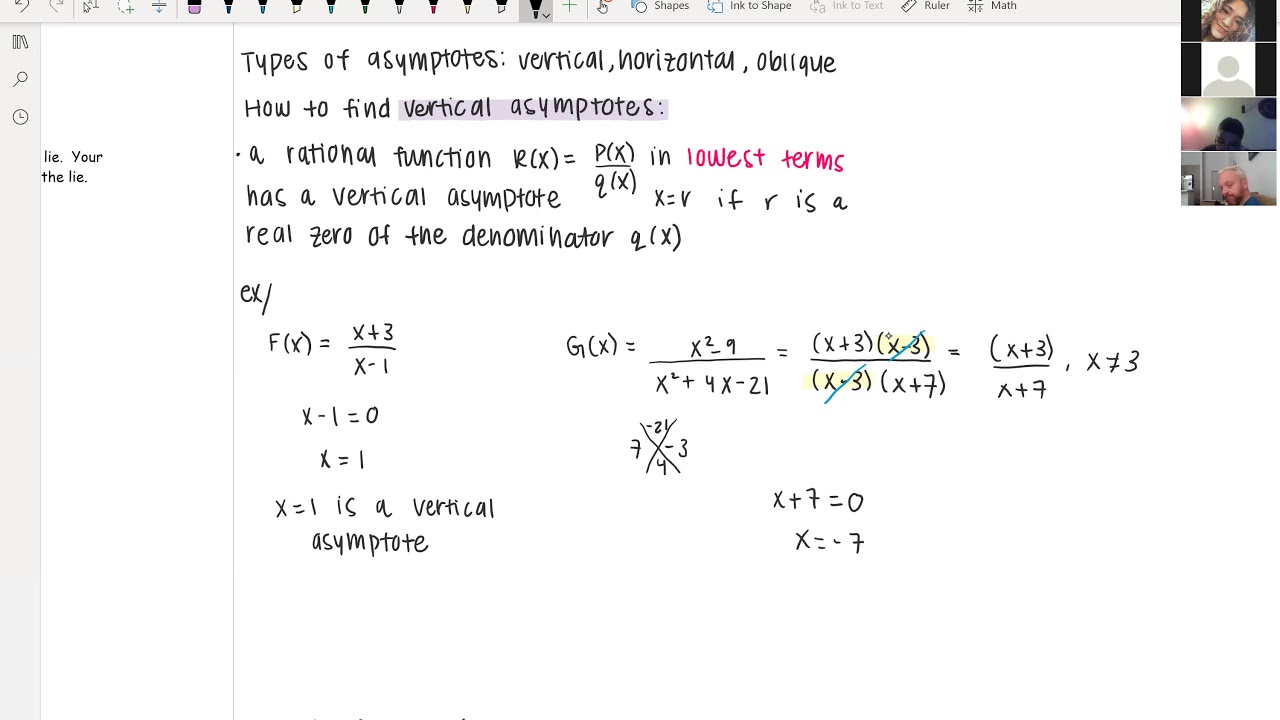 Shapes Ink to Shape Ink to Text Ruler Math
lie. Your
the lie.
Types of asymptotes: vertical, horizontal, oblique
How to find vertical asymptotes:
• a rational function R(x) = p(x)/q(x) in lowest terms
has a vertical asymptote x=r if r is a
real zero of the denominator q(x)
ex/
F(x) = x+3/x-1
G(x) = x²-9/x²+4x-21 = (x+3)(x-3)/(x-3)(x+7) = (x+3)/x+7, x≠3
x-1=0
-21
7 -3
4
x=1
x=1 is a vertical
asymptote
x+7=0
x=-7